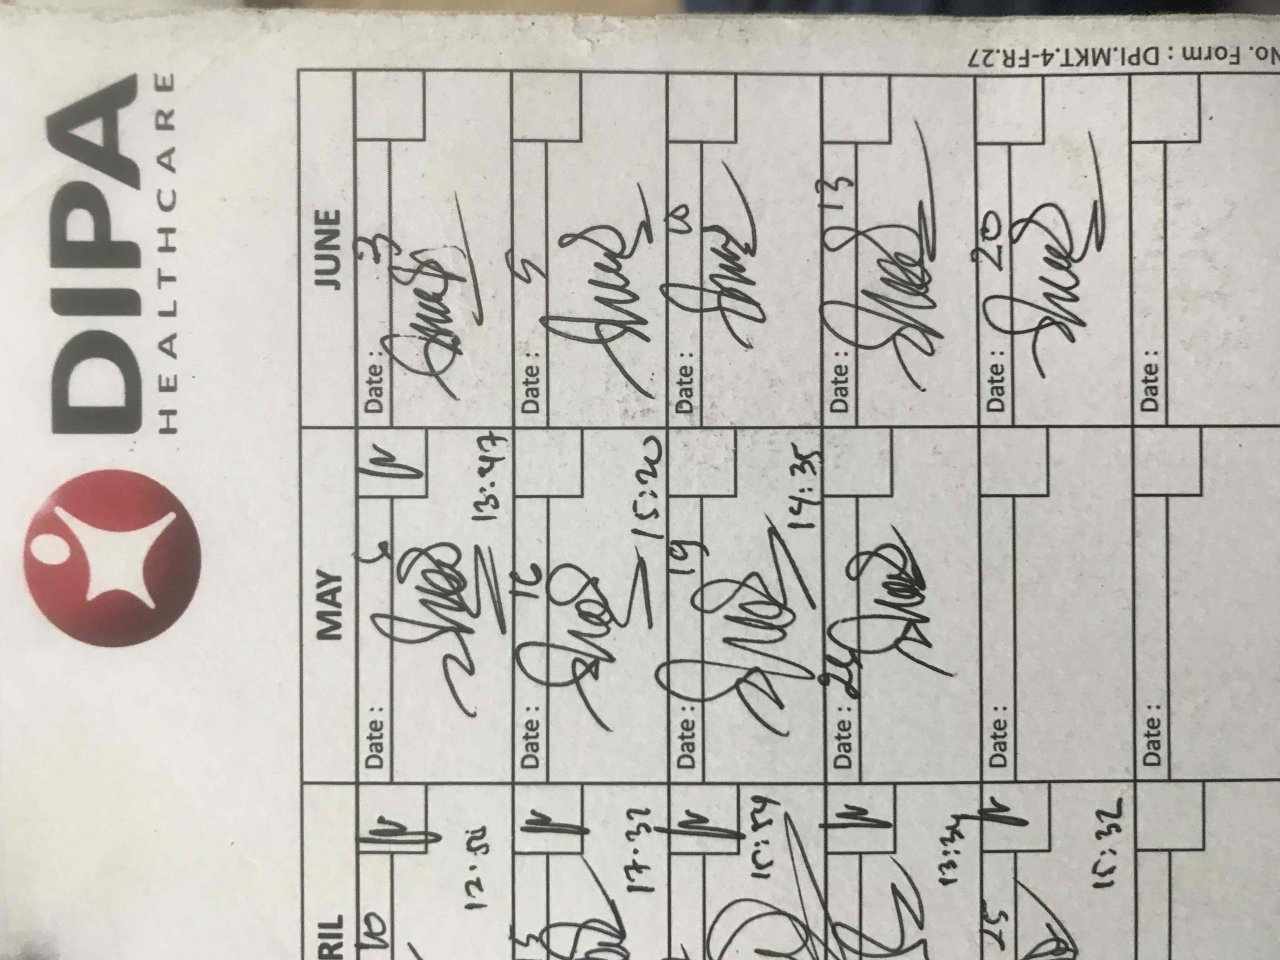 DIPA
HEALTHCARE
No. Form : DPI.MKT.4-FR.27
RIL
MAY
JUNE
10
12.50
Date : 6
13:47
Date : 3
17.32
Date : 16
15:20
Date : 5
15:54
Date : 19
14:35
Date : 10
13:34
Date : 24
Date : 13
25
15:32
Date :
Date : 20
Date :
Date :